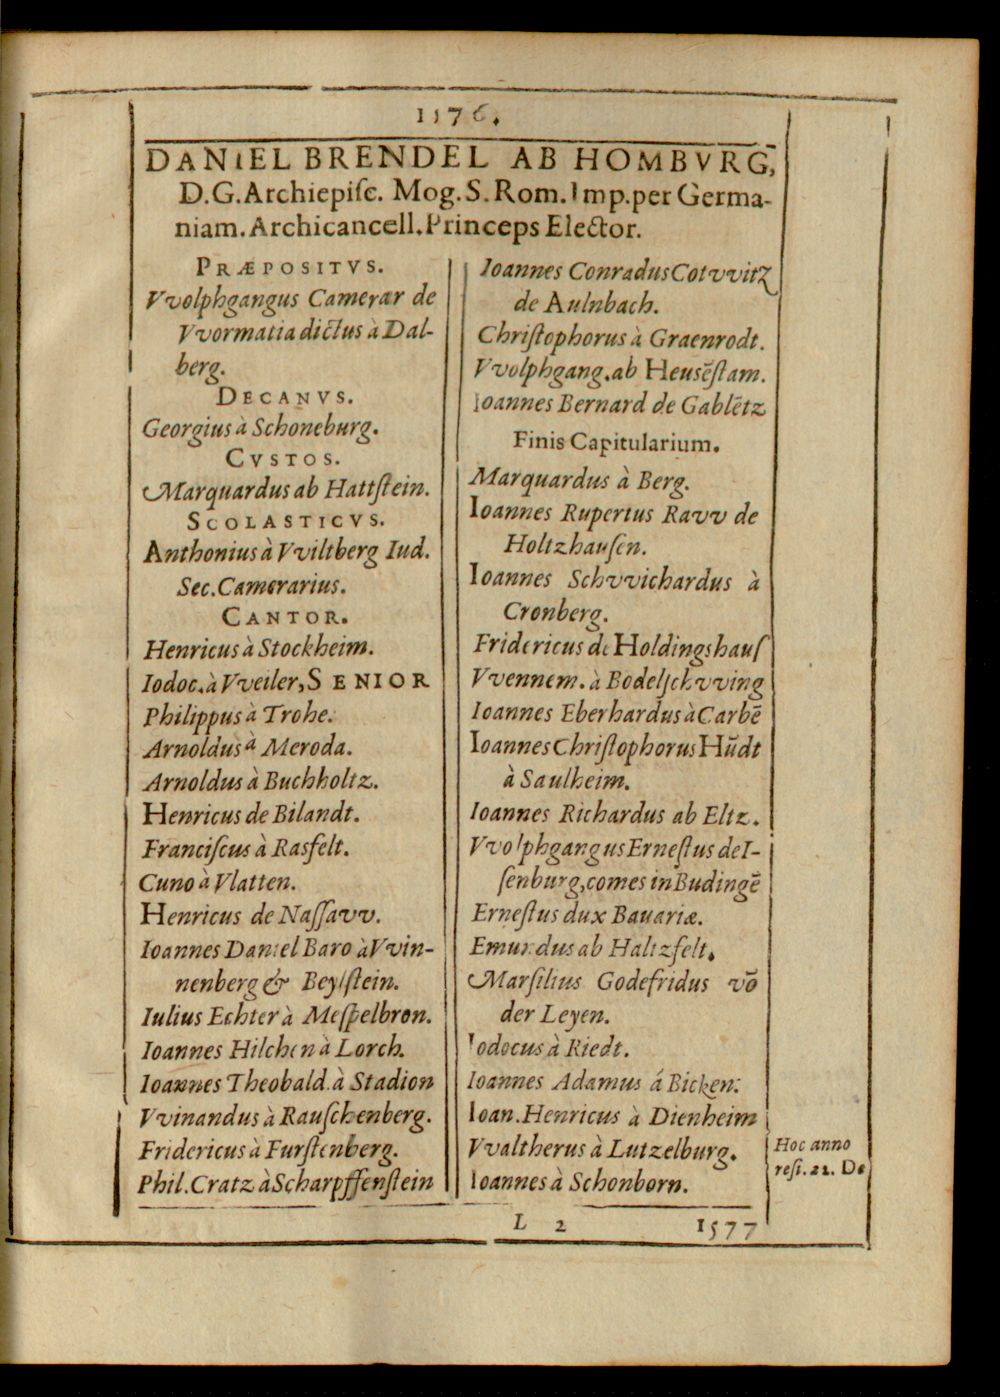 1576.
DANIEL BRENDEL AB HOMBVRG,
D.G. Archiepisc. Mog. S. Rom. Imp. per Germa-
niam. Archicancell. Princeps Elector.
PRÆPOSITVS.
Vvolphgangus Camerar de
Vvormatia dictus à Dal-
berg.
DECANVS.
Georgius à Schoneburg.
CVSTOS.
Marquardus ab Hattstein.
SCOLASTICVS.
Anthonius à Vviltberg Iud.
Sec. Camerarius.
CANTOR.
Henricus à Stockheim.
Iodoc. à Vveiler, SENIOR
Philippus à Trohe.
Arnoldus à Meroda.
Arnoldus à Buchholtz.
Henricus de Bilandt.
Franciscus à Rasfelt.
Cuno à Vlatten.
Henricus de Nassavv.
Ioannes Daniel Baro à Vvin-
nenberg & Beylstein.
Iulius Echter à Mespelbron.
Ioannes Hilchen à Lorch.
Ioannes Theobald. à Stadion
Vvinandus à Rauschenberg.
Fridericus à Furstenberg.
Phil. Cratz à Scharpffenstein
Ioannes Conradus Cotvvitz
de Aulnbach.
Christophorus à Graenrodt.
Vvolphgang. ab Heusēstam.
Ioannes Bernard de Gablētz
Finis Capitularium.
Marquardus à Berg.
Ioannes Rupertus Ravv de
Holtzhausen.
Ioannes Schvvichardus à
Cronberg.
Fridericus de Holdingshaus
Vvennem. à Bodelschvving
Ioannes Eberhardus à Carbē
Ioannes Christophorus Hūdt
à Saulheim.
Ioannes Richardus ab Eltz.
Vvolphgangus Ernestus de I-
senburg, comes in Budingē
Ernestus dux Bauariæ.
Emundus ab Haltzfelt.
Marsilius Godefridus vō
der Leyen.
Iodocus à Riedt.
Ioannes Adamus á Bicken.
Ioan. Henricus à Dienheim
Vvaltherus à Lutzelburg.
Ioannes à Schonborn.
Hoc anno
resi. 21. De
L 2 1577